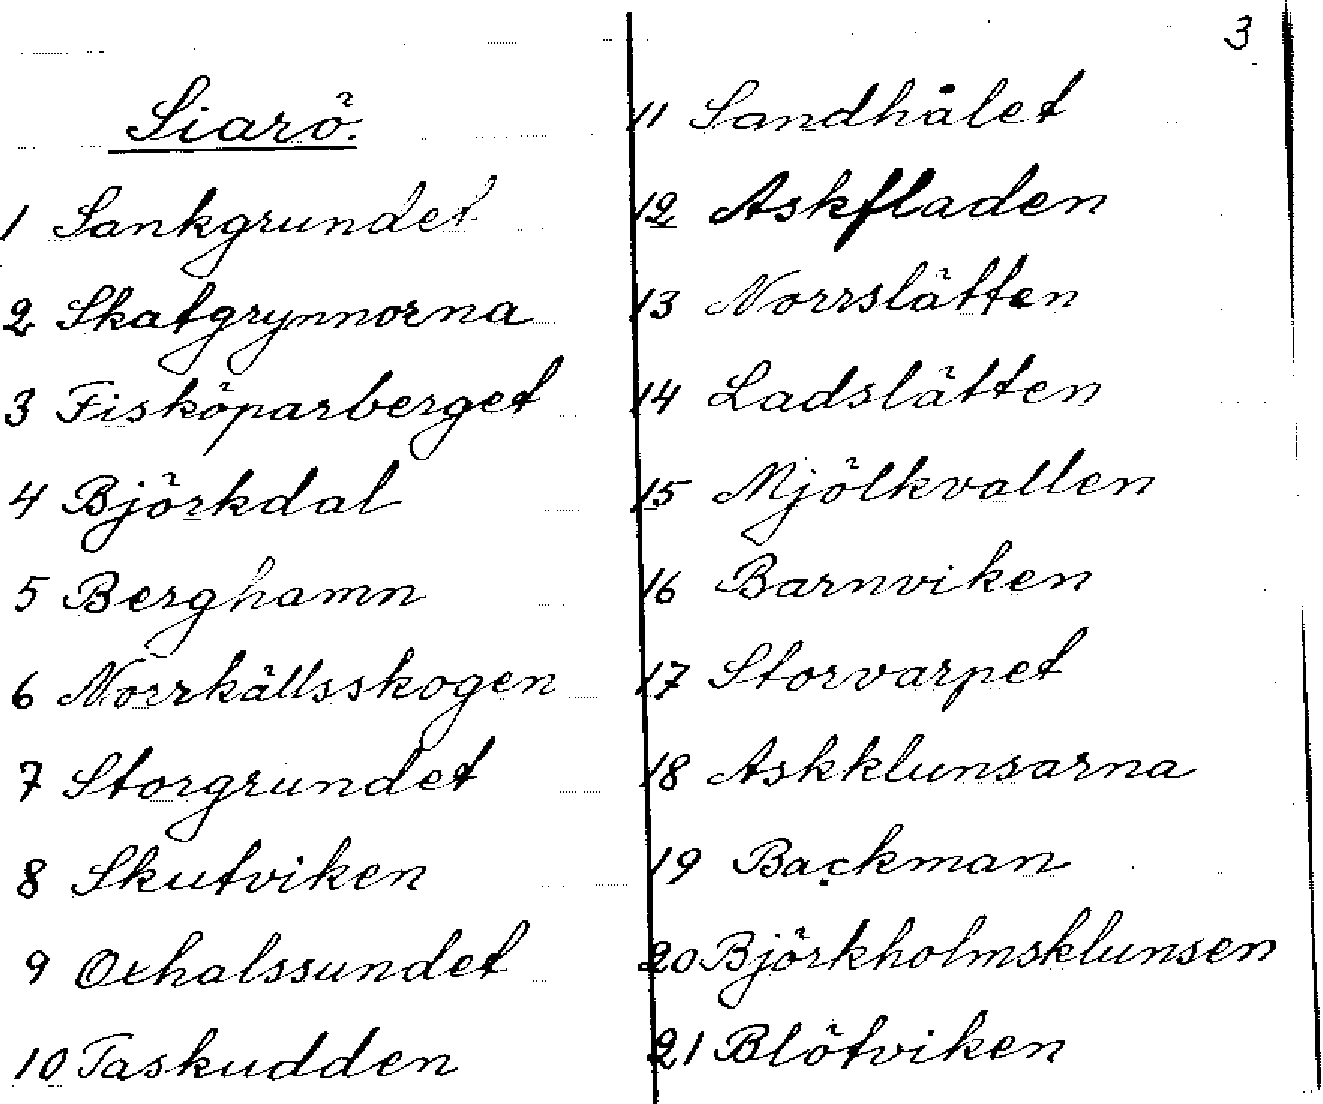 3
Siarö.
1 Sankgrundet
2 Skatgrynnorna
3 Fisköparberget
4 Björkdal
5 Berghamn
6 Norrkällsskogen
7 Storgrundet
8 Skutviken
9 Oxhalssundet
10 Taskudden
11 Sandhålet
12 Askfladen
13 Norrslätten
14 Ladslätten
15 Mjölkvallen
16 Barnviken
17 Storvarpet
18 Askklunsarna
19 Backman
20 Björkholmsklunsen
21 Blötviken